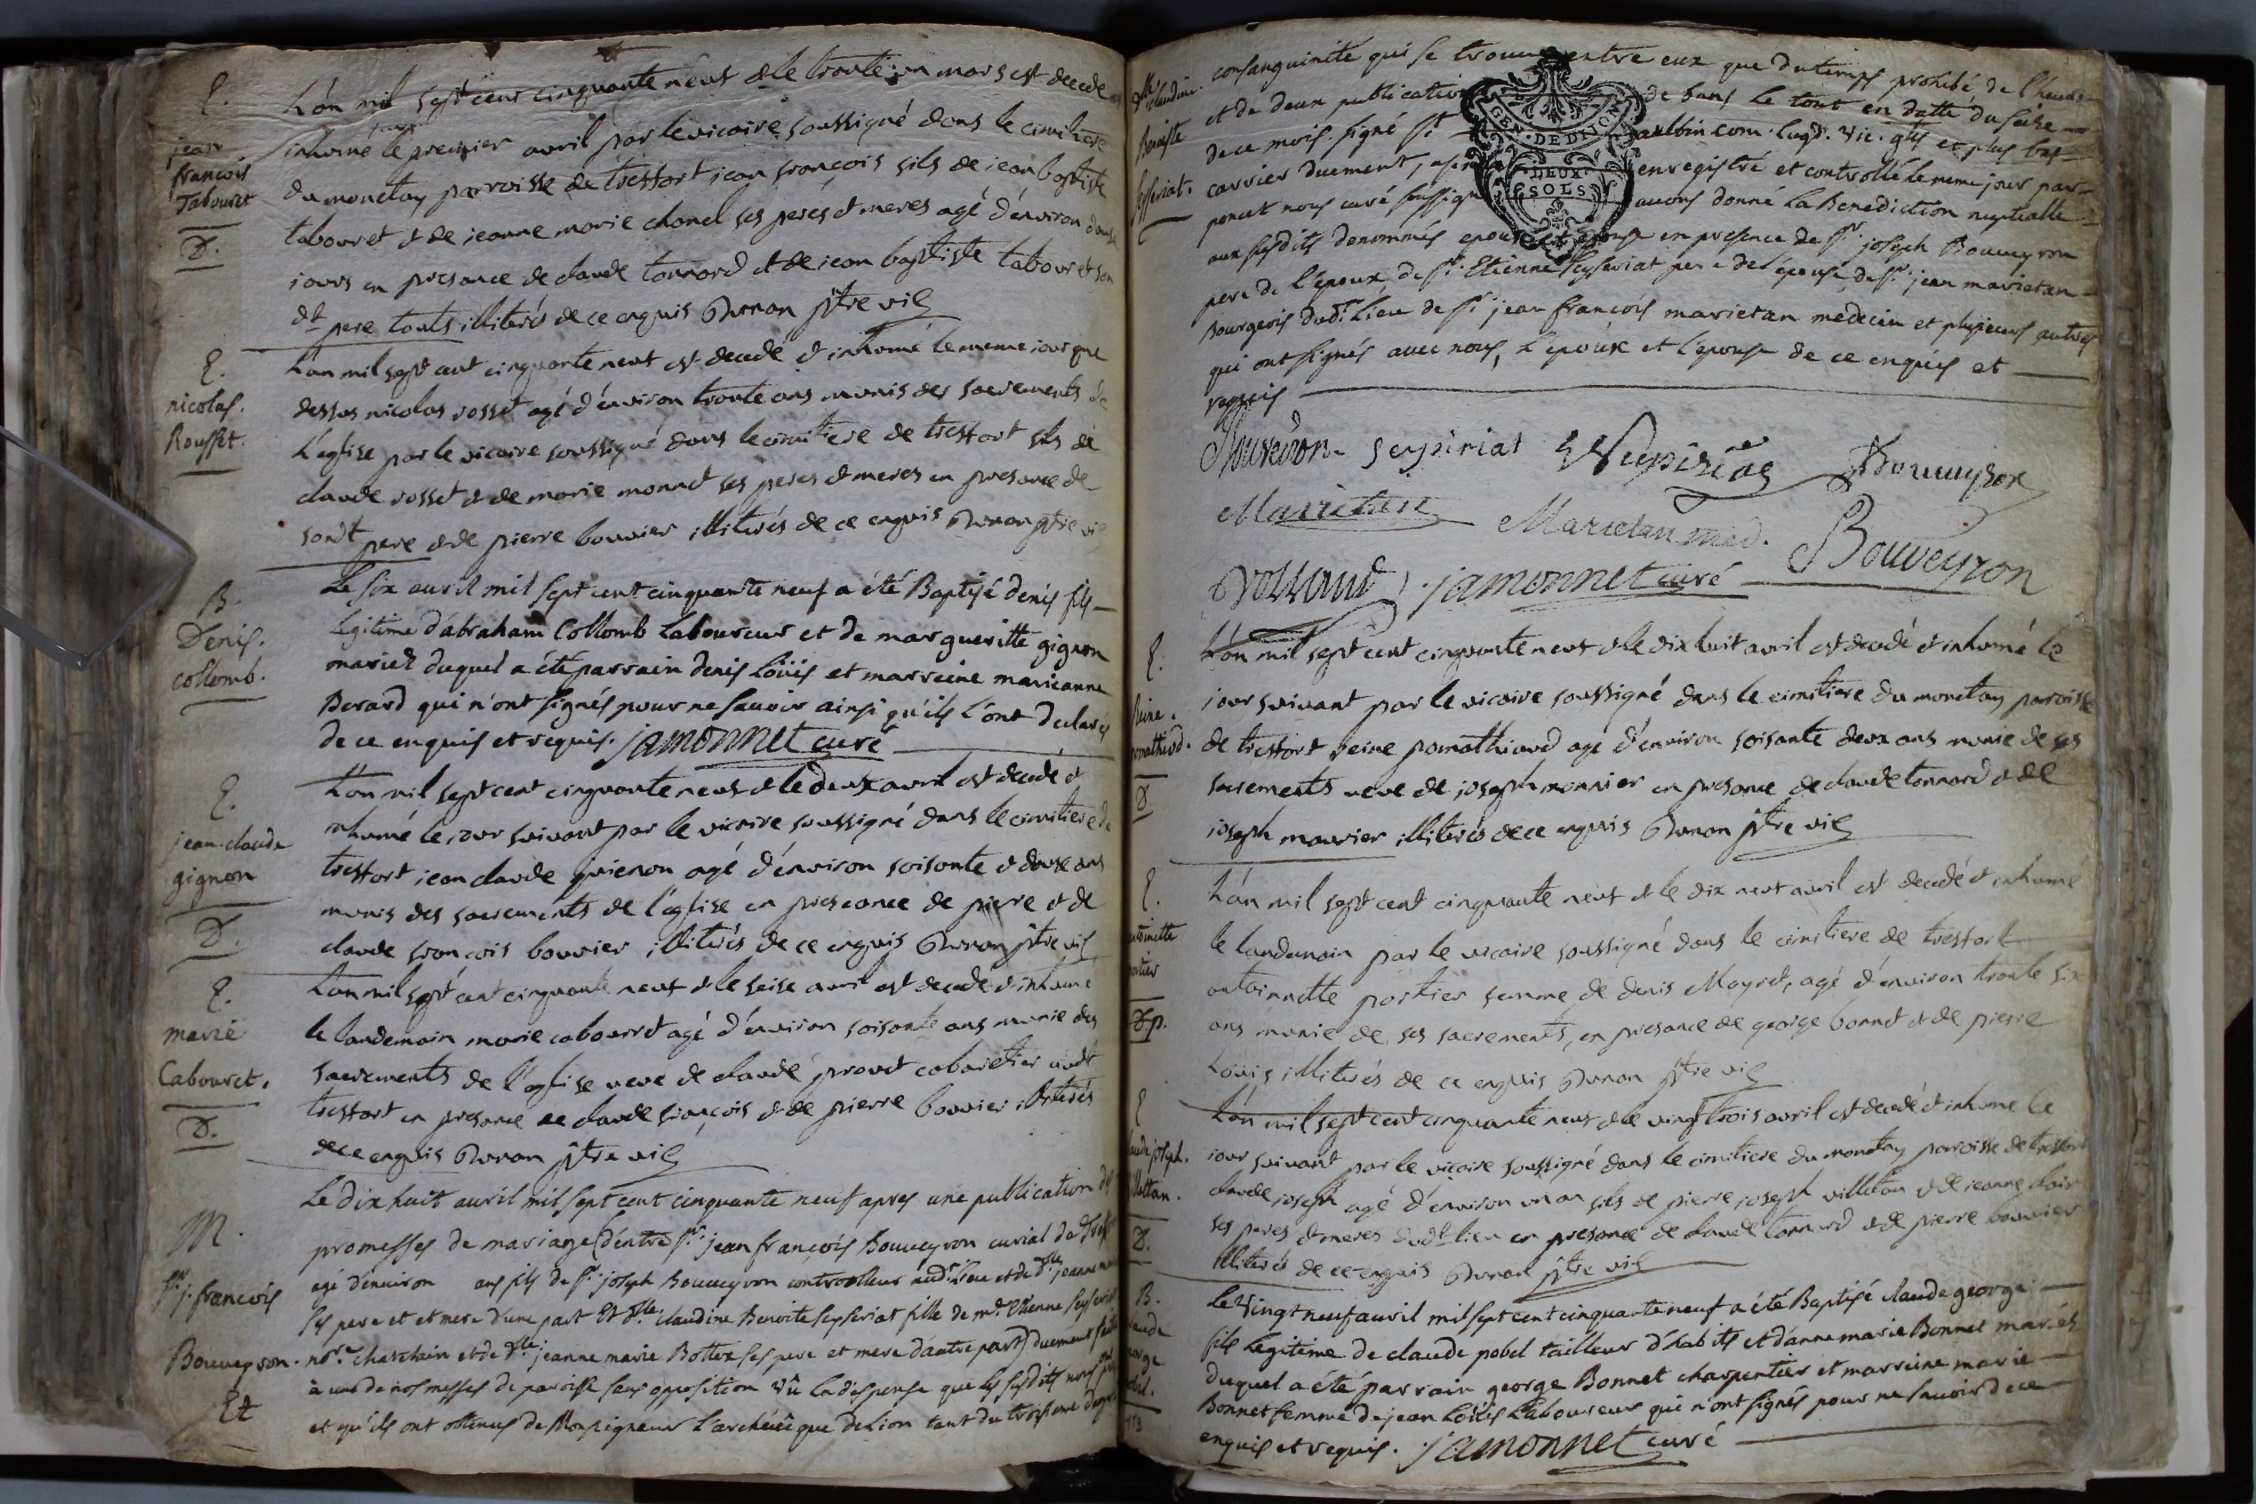 E.
jean
françois
Tabouret
D.
L'an mil sept cent cinquante neuf & le trente un mars est decedé
inhumé le premier avril par le vicaire soussigné dans le cimitiere
du monetay parroisse de tressort jean françois fils de jean baptiste
tabouret & de jeanne marie chanel ses peres & meres agé d'environ douse
jours en presance de claude tonnard & de jean baptiste tabouret son
dt pere touts illiterés de ce enquis Durnon ptre vic
E.
nicolas.
Rousset.
L'an mil sept cent cinquante neuf est decedé & inhumé le meme jour que
dessus nicolas rosset agé d'environ trente ans munis des sacrements de
l'eglise par le vicaire soussigné dans le cimitiere de tressort fils de
claude rosset & de marie monnet ses peres & meres en presance de
sondt pere & de pierre bouvier illiterés de ce enquis Durnon ptre vic
B.
Denis.
collomb.
Le six avril mil sept cent cinquante neuf a été Baptisé denis fils
legitime d'abraham Collomb Laboureur et de margueritte gignon
mariez duquel a été parrain denis Loüis et marreine marieanne
Berard qui n'ont signés pour ne sauoir ainsi qu'ils l'ont declarés
de ce enquis et requis. jamonnet curé
E.
jean-claude
gignon
D.
L'an mil sept cent cinquante neuf & le deux avril est decedé &
inhumé le jour suivant par le vicaire soussigné dans le cimitiere de
tressort jean claude guienon agé d'environ soisante & douse ans
munis des sacrements de l'eglise en presance de pierre et de
claude françois bouvier illiterés de ce enquis Durnon ptre vic
E.
marie
Cabouret.
D.
L'an mil sept cent cinquante neuf & le seise avril est decedé & inhumé
le landemain marie cabouret agé d'environ soisante ans munie des
sacrements de l'eglise veve de claude provet cabaretier audt
tressort en presance de claude françois & de pierre bouvier illiterés
de ce enquis Durnon ptre vic
M.
Sr. j. francois
Bouveyron.
Et
Le dix huit auril mil sept cent cinquante neuf apres une publication des
promesses de mariage (d'entre Sr. jean françois Bouveyron curial de Tress
agé d'enuiron ans fils de Sr. joseph Bouveyron controolleur audt. Lieu et de dlle. jeanne
ses pere et et mere d'une part Et dlle. claudine Benoite seyseriat fille de mr. Etienne Seyseriat
nore. chatelain et de dlle jeanne marie Bottex ses pere et mere d'autre part) duement faite
à une de nos messes de paroisse sans opposition Vû la dispense que les susdits nous
et qu'ils ont obtenus de Monseigneur l'archeuêque de Lion tant du troisieme degré
dlle
claudine
Benoiste
seyseriat.
consanguinité qui se trouue entre eux que du temps prohibé de l'heure
et de deux publications de bans le tout en datte du seize
de ce mois. signé St aulbin com. Lugd. Vic. gts et plus bas
carrier duement, enregistré et controllé le meme jour par
poncet nous curé soussigné auons donné la Benediction nuptialle
aux susdits denommés epoux et epouse en presence de Sr. joseph Bouveyron
pere de l'epoux, de Sr. Etienne seyseriat pere de l'epouse, de Sr. jean marietan
Bourgeois dudt. Lieu de Sr jean françois marietan medecin et plusieurs autres
qui ont signés auec nous, L'epoux et l'epouse de ce enquis et
requis
Bouveiron seyseriat Seyseriat Bouveyron
Marietan Marietan med. Bouveyron
Volland jamonnet curé
E.
Reine.
pomathiod.
D.
L'an mil sept cent cinquante neuf & le dix huit avril est decedé & inhumé le
jour suivant par le vicaire soussigné dans le cimitiere du monetay paroisse
de tressort reine pomathiaud agé d'environ soisante deux ans munie de ses
sacrements veve de joseph monnier en presance de claude tonnard & de
joseph mourier illiterés de ce enquis Durnon ptre vic
E.
antoinette
portier
Dp.
L'an mil sept cent cinquante neuf & le dix neuf avril est decedé & inhumé
le landemain par le vicaire soussigné dans le cimitiere de tressort
antoinnette portier femme de denis Mayret, agé d'environ trente six
ans munie de ses sacrements, en presance de george bonnet & de pierre
Loüis illiterés de ce enquis Durnon ptre vic
E
claude joseph.
villattan.
D.
L'an mil sept cent cinquante neuf & le vingt trois avril est decedé & inhumé le
jour suivant par le vicaire soussigné dans le cimitiere du monetay paroisse de tressort
claude joseph agé d'environ un an fils de pierre joseph villetan & de jeanne clair
ses peres & meres dudt lieu en presance de claude tonnard & de pierre bouvier
illiterés de ce enquis Durnon ptre vic
B.
claude
george
pobel.
Le Vingt neuf auril mil sept cent cinquante neuf a été Baptisé claude george
fils Legitime de claude pobel tailleur d'habits et d'anne marie Bonnet mariés
duquel a été parrain george Bonnet charpentier et marreine marie
Bonnet femme de jean Loüis Laboureur qui n'ont signés pour ne sauoir de ce
enquis et requis. jamonnet curé
GEN. DE DIJON
DEUX
SOLS